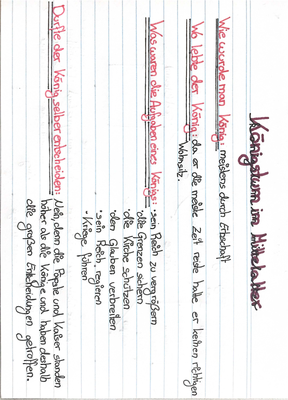 Königstum im Mittelalter
Wie wurde man König: meistens durch Erbschaft
Wo lebte der König: da er die meiste Zeit reiste hatte er keinen richtigen
Wohnsitz.
Was waren die Aufgaben eines Königs: -sein Reich zu vergrößern
-die Grenzen sichern
-die Kirche schützen
-den Glauben verbreiten
-sein Reich regieren
-Kriege führen
Durfte der König selber entscheiden: Nein, denn die Päpste und Kaiser standen
höher als die Könige und haben deshalb
die großen Entscheidungen getroffen.